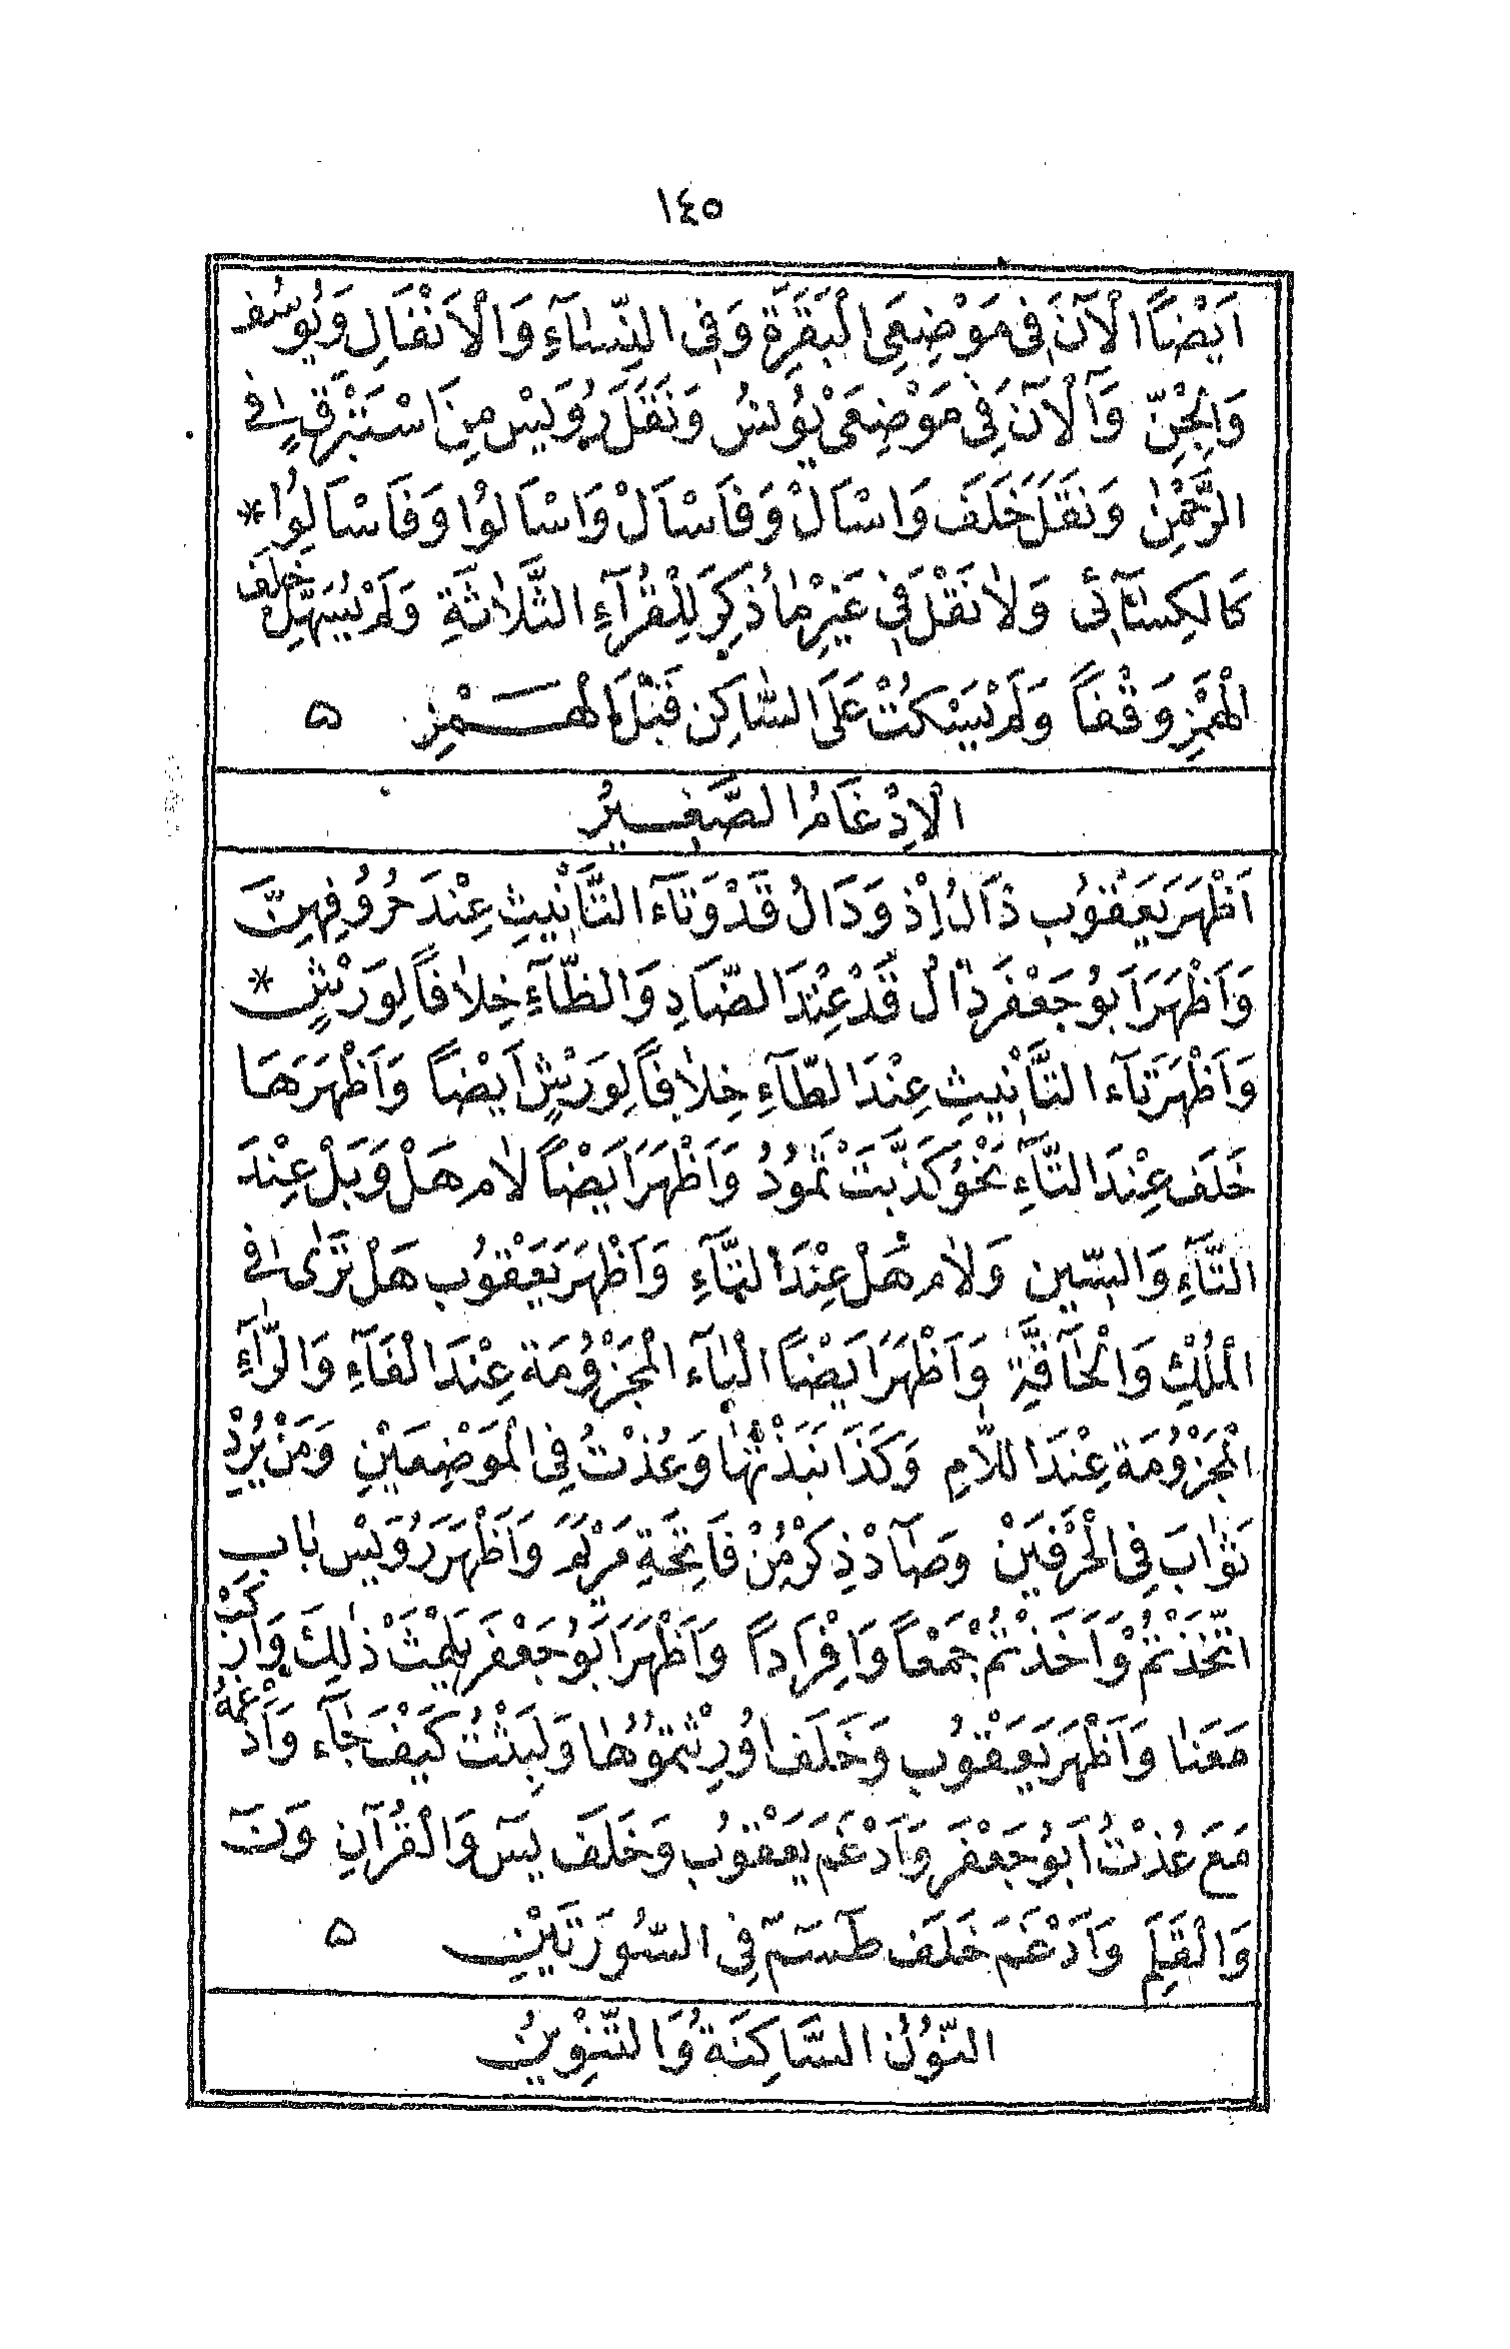 ١٤٥
اَيْضاً الْآنَ فِى مَوْضِعَىِ الْبَقَرَةِ وَفِى النِّسٰآءِ وَالْاَنْفَالِ وَيُوسُفَ
وَالْجِنِّ وَآلْآنَ فِى مَوْضِعَىْ يُونُسَ وَنَقَلَ رُوَيْسٌ مِنِ اسْتَبْرَقٍ فِى
الرَّحْمٰنِ وَنَقَلَ خَلَفٌ وَاسْاَلْ وَفَاسْاَلْ وَاسْاَلوُا وَفَاسْاَلوُا *
كَالكِسٰآئِى وَلاٰ نَقْلَ فِى غَيْرِ مٰا ذُكِرَ لِلْقُرّآءِ الثَّلاٰثَةِ وَلَمْ يُسَهِّلْ خَلَفٌ
الْهَمْزَ وَقْفاً وَلَمْ يَسْكُتْ عَلَى السّٰاكِنِ قَبْلَ الْهَمْزِ ۵
الْاِدْغَامُ الصَّغِيرُ
اَظْهَرَ يَعْقُوبُ ذَالَ اِذْ وَدَالَ قَدْ وَتَآءَ التَّأْنِيثِ عِنْدَ حُرُوفِهِنَّ
وَاَظْهَرَ اَبوُ جَعْفَرٍ دٰالَ قَدْ عِنْدَ الضَّادِ وَالظَّآءِ خِلاٰفاً لِوَرْشٍ *
وَاَظْهَرَ تَآءَ التَّأْنِيثِ عِنْدَ الظّآءِ خِلاٰفاً لِوَرْشٍ اَيْضاً وَاَظْهَرَهَا
خَلَفٌ عِنْدَ الثَّآءِ نَحْوُ كَذَّبَتْ ثَمُودُ وَاَظْهَرَ اَيْضاً لاٰمَ هَلْ وَبَلْ عِنْدَ
التَّآءِ وَالسّينِ وَلاٰمَ هَلْ عِنْدَ الثَّآءِ وَاَظْهَرَ يَعْقُوبُ هَلْ تَرٰى فِى
الْمُلْكِ وَالْحٰآقَّةِ وَاَظْهَرَ اَيْضاً الْبٰآءَ الْمَجْزُومَةَ عِنْدَ الْفَآءِ وَالرّٰآءَ
الْمَجْزُومَةَ عِنْدَ اللاّٰمِ وَكَذَا نَبَذْتُهٰا وَعُذْتُ فِى الْمَوْضِعَيْنِ وَمَنْ يُرِدْ
ثَوٰابَ فِى الْحَرْفَيْنِ وَصٰآدْ ذِكْرُ مِنْ فَاتِحَةِ مَرْيَمَ وَاَظْهَرَ رُوَيْسٌ بٰابَ
اتَّخَذْتُمْ وَاَخَذْتُمْ جَمْعاً وَاِفْرَاداً وَاَظْهَرَ اَبوُ جَعْفَرٍ يَلْهَثْ ذٰلِكَ وَارْكَبْ
مَعَنٰا وَاَظْهَرَ يَعْقُوبُ وَخَلَفٌ اوُرِثْتُمُوُهٰا وَلَبِثْتُ كَيْفَ جٰآءَ وَاَدْغَمَهُ
مَعَ عُذْتُ اَبوُ جَعْفَرٍ وَاَدْغَمَ يَعْقُوبُ وَخَلَفٌ يسٓ وَالْقُرْآنِ وَنٓ
وَالْقَلَمِ وَاَدْغَمَ خَلَفٌ طٓسٓمٓ فِى السُّورَتَيْنِ ۵
النُّونُ السَّاكِنَةُ وَالتَّنْوِينُ